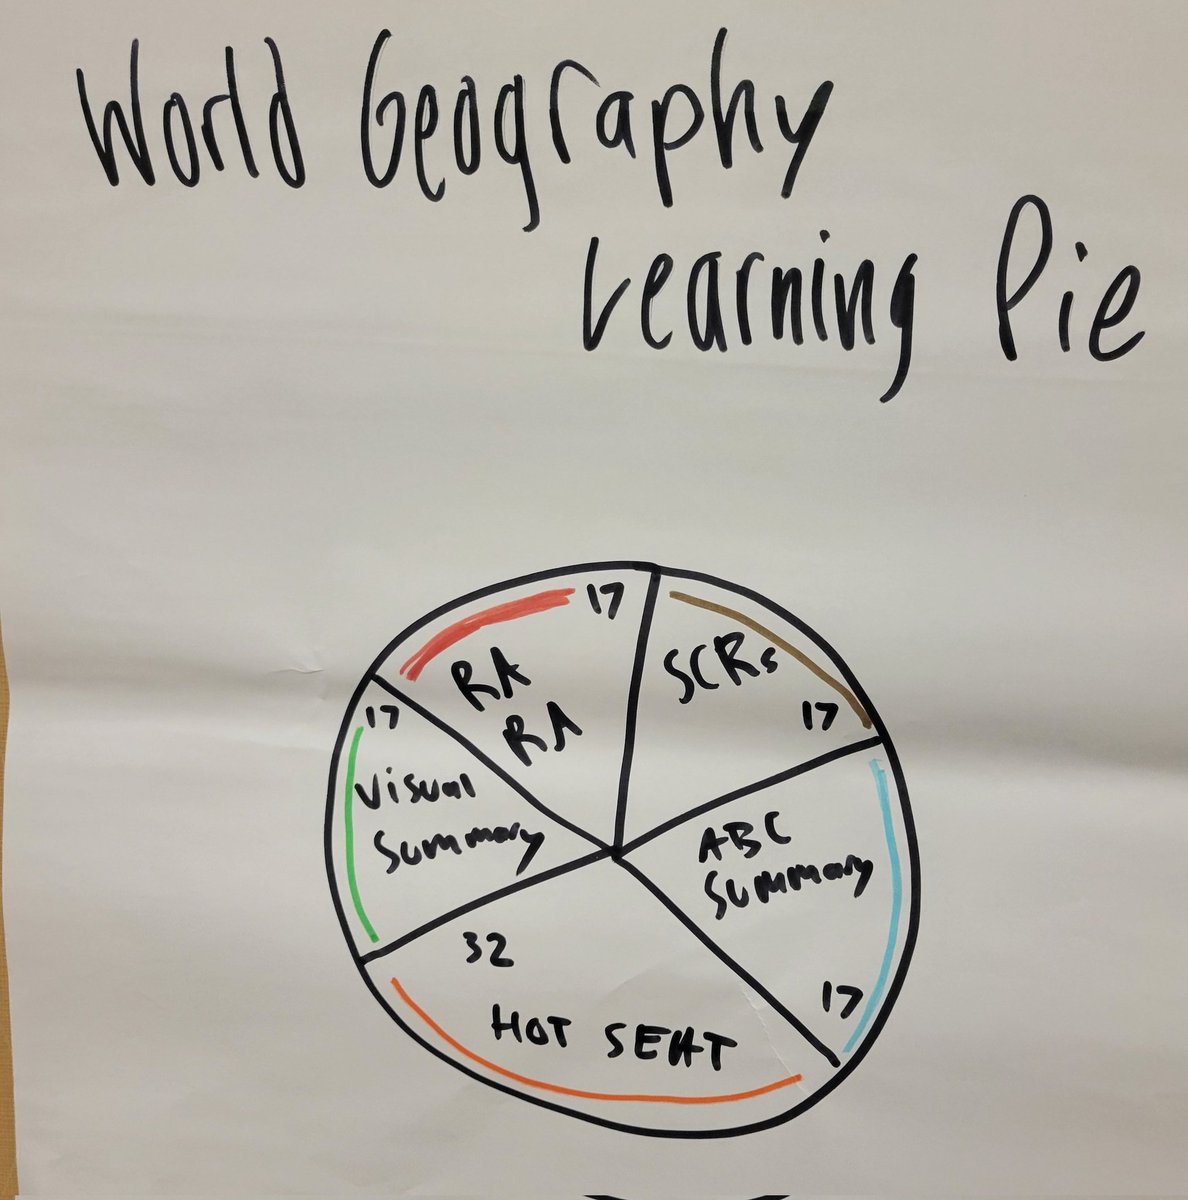 World Geography
Learning Pie
17
RA
RA
SCRs
17
17
Visual
Summary
ABC
Summary
17
32
HOT SEAT